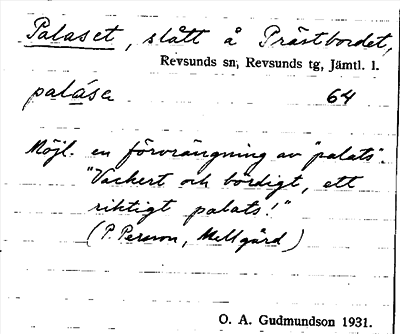 Palaset, slått å Prästbordet,
Revsunds sn, Revsunds tg, Jämtl. l.
palásɛ 64
Möjl. en förvrängning av "palats".
"Vackert och bördigt, ett
riktigt palats!"
(P. Persson, Mellgård)
O. A. Gudmundson 1931.